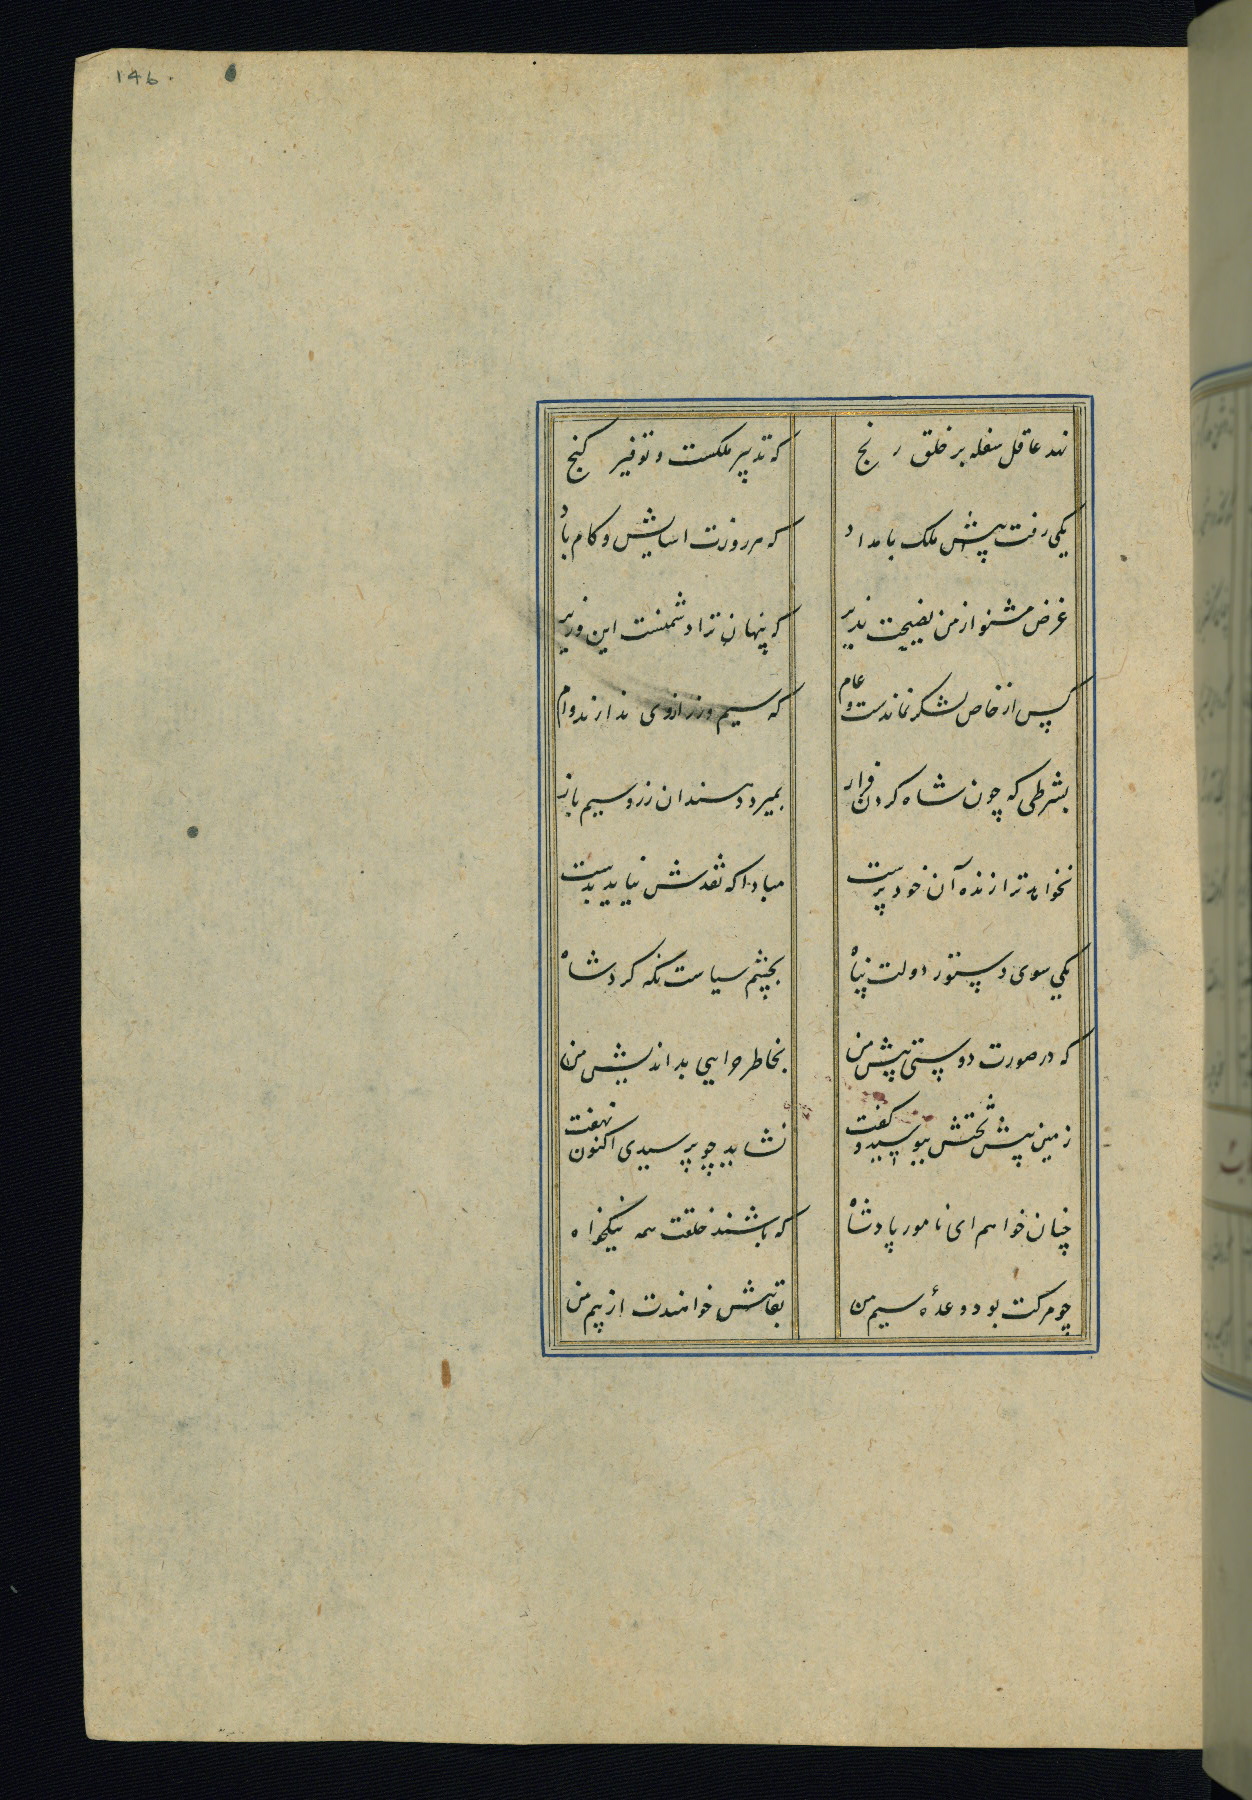 146.
نهد عاقل سفله بر خلق رنج که تدبیر ملکست و توفیر کنج
یکی رفت پیش ملک بامداد که هر روزت اسایش و کام باد
غرض مشنو از من نصیحت پذیر که پنهان ترا دشمنست این وزیر
کس از خاص لشکر نماندست و عام که سیم و زر از وی ندارند وام
بشرطی که چون شاه کردن فراز بمیرد دهند ان زر و سیم باز
نخواهد ترا زنده آن خودپرست مبادا که نقدش نیاید بدست
یکی سوی دستور دولت پناه بچشم سیاست نکه کرد شاه
که در صورت دوستی پیش من بخاطر چرایی بد اندیش من
زمین پیش تختش ببوسید و کفت نشاید چو پرسیدی اکنون نهفت
چنان خواهم ای نامور پادشاه که باشند خلقت همه نیکخواه
چو مرکت بود وعدهٔ سیم من بقا بیش خواهندت از بیم من